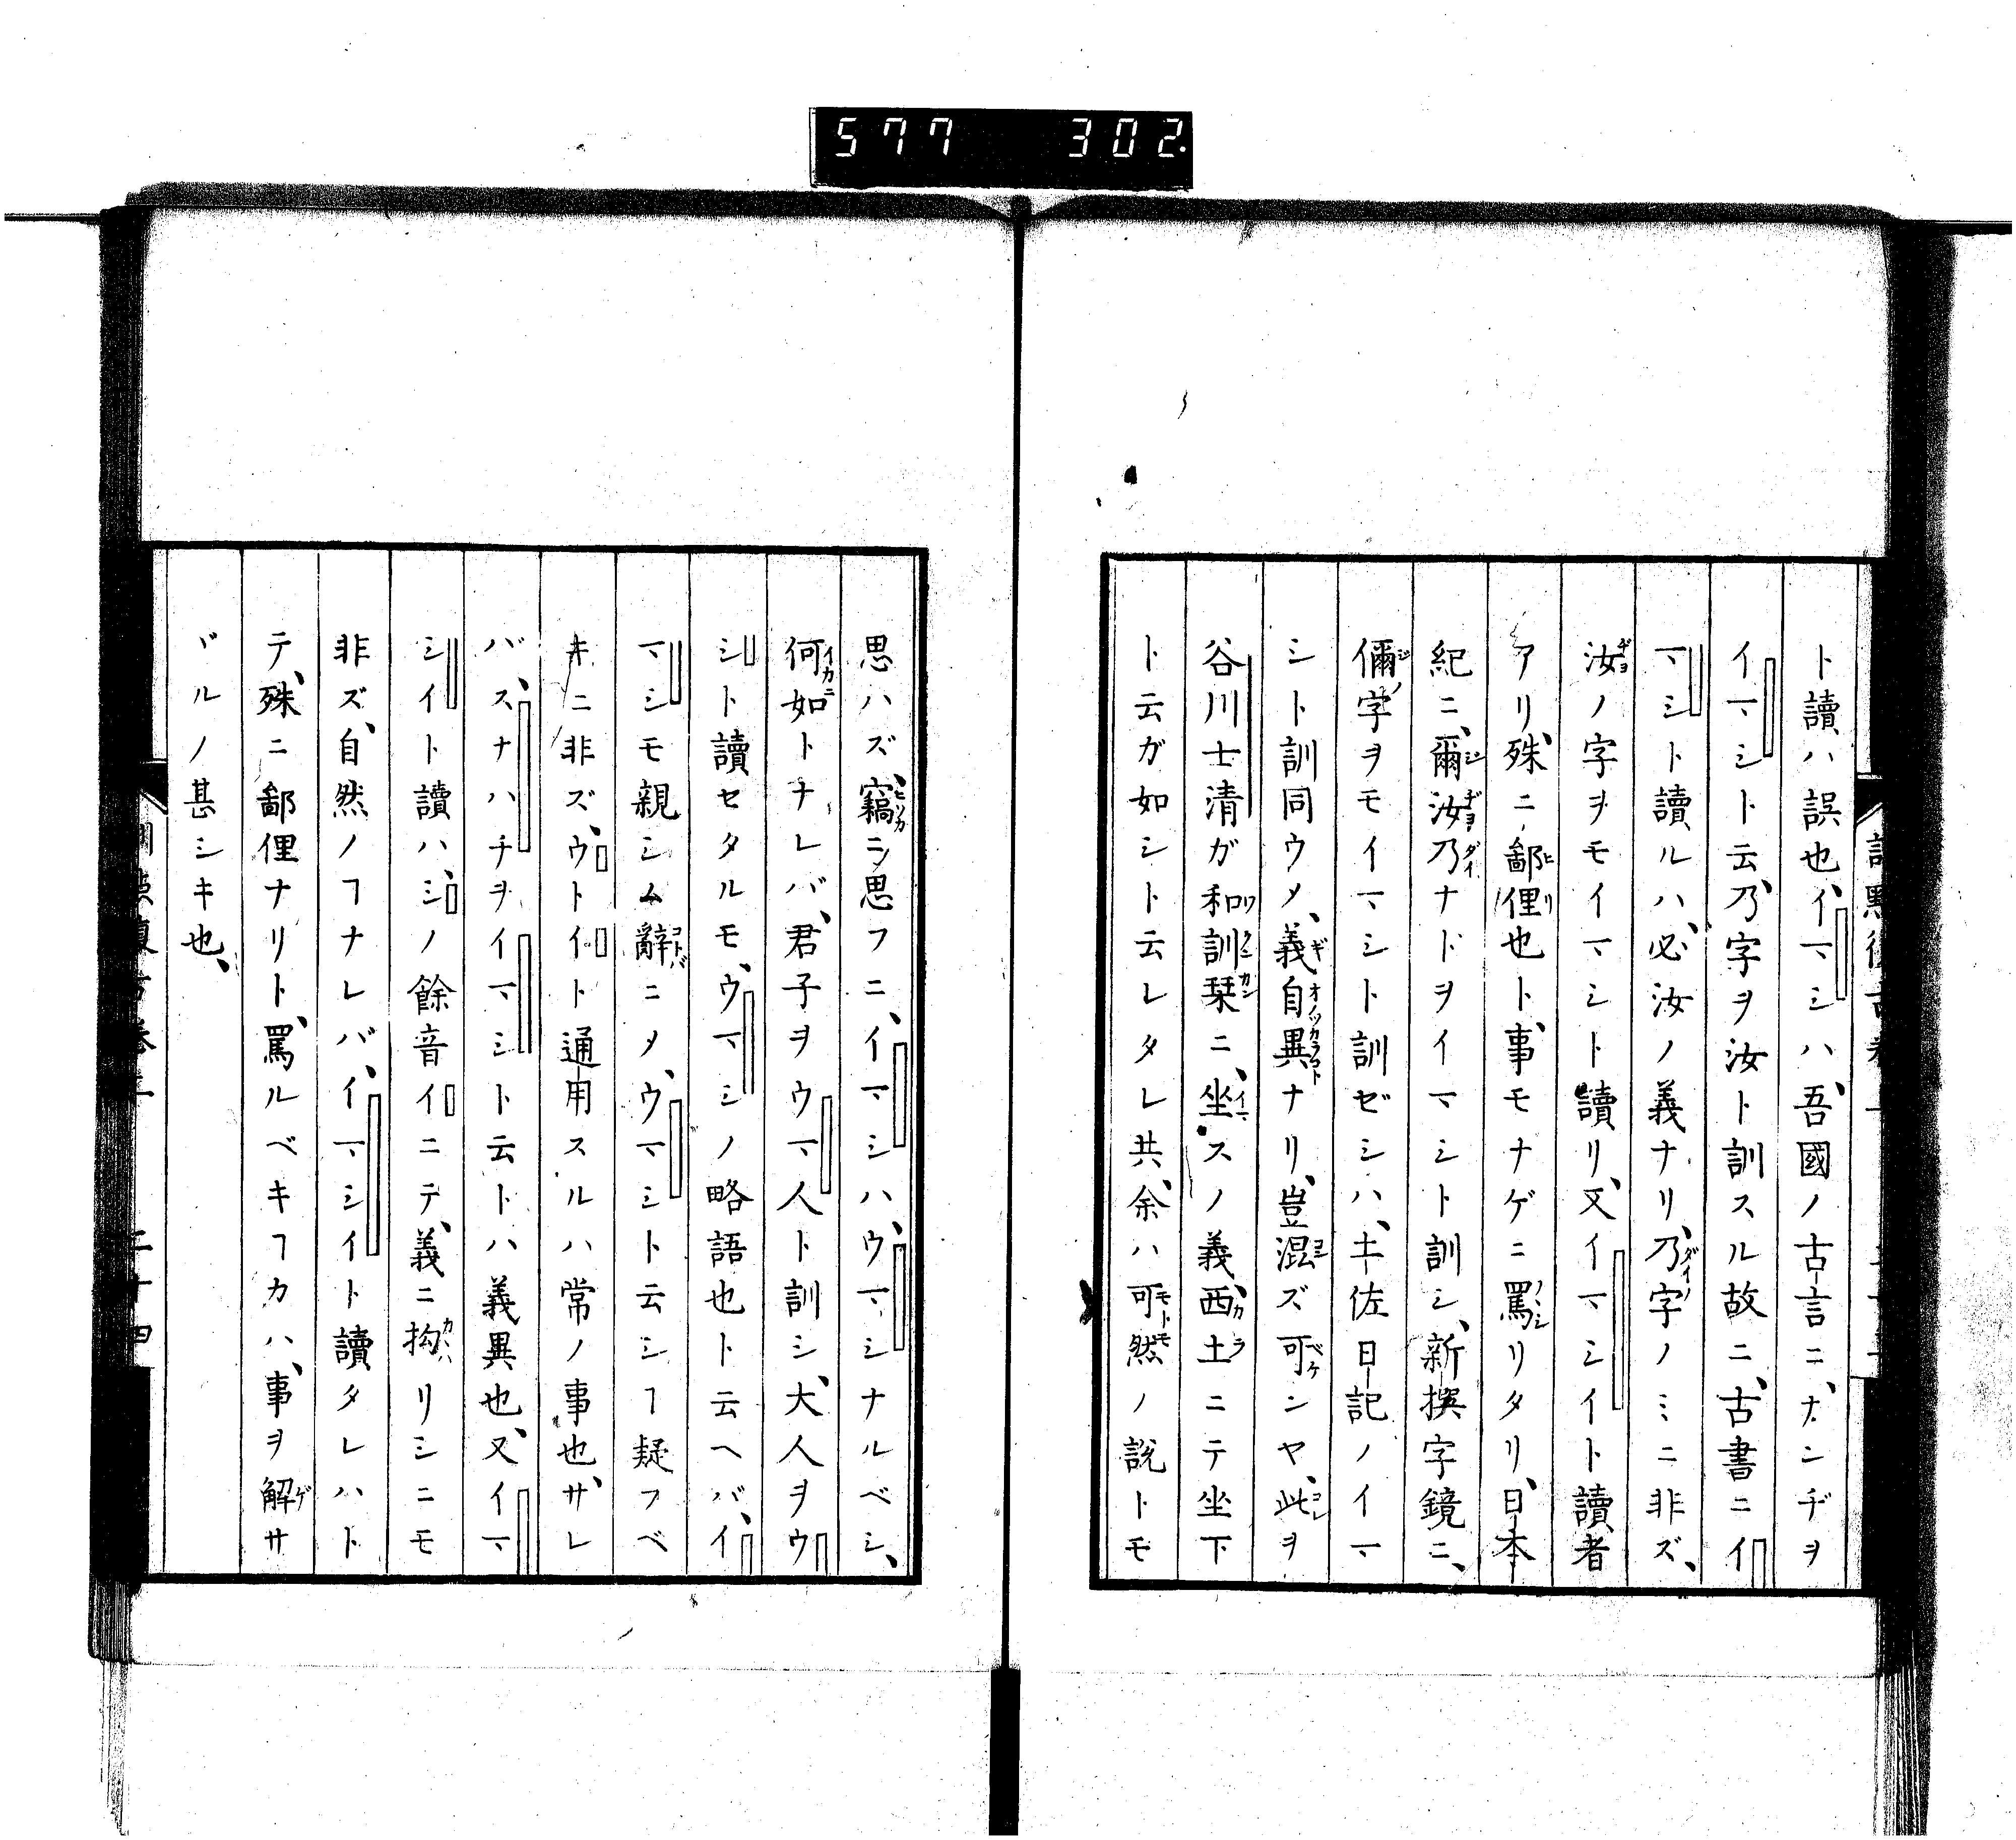 577 302.
ト讀ハ誤也、イマシハ、吾國ノ古言ニ、ナンヂヲ
イマシト云、乃字ヲ汝ト訓スル故ニ、古書ニイ
マシト讀ルハ、必汝ノ義ナリ、乃字ノミニ非ズ、
汝ノ字ヲモイマシト讀リ、又イマシイト讀者
アリ、殊ニ鄙俚也ト、事モナゲニ罵リタリ、日本
紀ニ、爾汝乃ナドヲイマシト訓シ、新撰字鏡ニ、
儞字ヲモイマシト訓ゼシハ、土佐日記ノイマ
シト訓同ウメ、義自異ナリ、豈混ズ可ンヤ、此ヲ
谷川士清ガ和訓栞ニ、坐スノ義、西土ニテ坐下
ト云ガ如シト云レタレ共、余ハ可然ノ說トモ
思ハズ、竊ニ思フニ、イマシハ、ウマシナルベシ、
何如トナレバ、君子ヲウマ人ト訓シ、大人ヲウ
シト讀セタルモ、ウマシノ略語也ト云ヘバ、イ
マシモ親シム辭ニメ、ウマシト云シヿ疑フベ
キニ非ズ、ウトイト通用スルハ常ノ事也、サレ
バ、スナハチヲイマシト云トハ義異也、又、イマ
シイト讀ハ、シノ餘音イニテ、義ニ拘リシニモ
非ズ、自然ノヿナレバ、イマシイト讀タレハト
テ、殊ニ鄙俚ナリト、罵ルベキヿカハ、事ヲ解サ
ヾルノ甚シキ也、
二十四